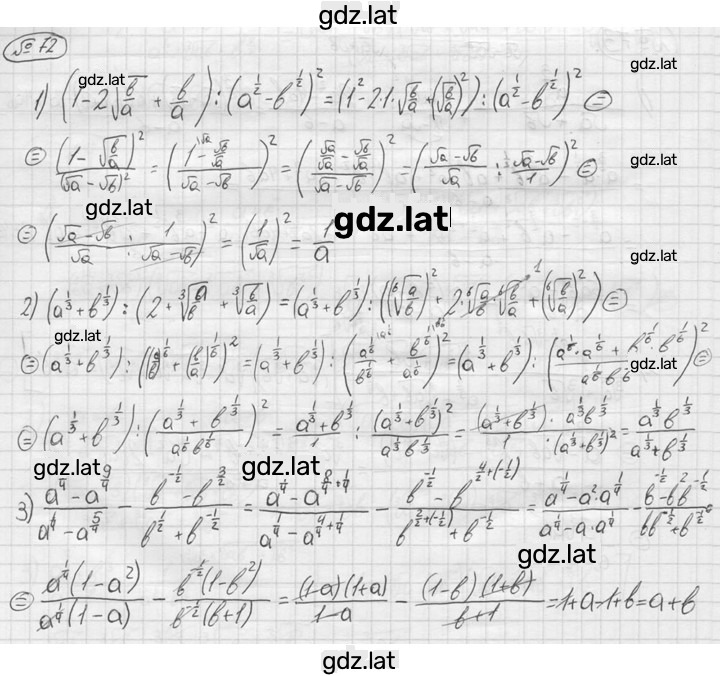 gdz.lat
№ 72
gdz.lat gdz.lat
1) (1-2√(b/a) + b/a) : (a^(1/2) - b^(1/2))^2 = (1^2 - 2·1·√(b/a) + (√(b/a))^2) : (a^(1/2) - b^(1/2))^2 =
= (1 - √(b/a))^2 / (√a - √b)^2 = ((1 - √b/√a) / (√a - √b))^2 = ((√a/√a - √b/√a) / (√a - √b))^2 = ((√a - √b)/√a : (√a - √b)/1)^2 =
gdz.lat gdz.lat
= ((√a - √b)/√a · 1/(√a - √b))^2 = (1/√a)^2 = 1/a
gdz.lat gdz.lat
2) (a^(1/3) + b^(1/3)) : (2 + ∛(a/b) + ∛(b/a)) = (a^(1/3) + b^(1/3)) : ((⁶√(a/b))^2 + 2·⁶√(a/b)·⁶√(b/a) + (⁶√(b/a))^2) =
gdz.lat gdz.lat
= (a^(1/3) + b^(1/3)) : ((a/b)^(1/6) + (b/a)^(1/6))^2 = (a^(1/3) + b^(1/3)) : (a^(1/6)/b^(1/6) + b^(1/6)/a^(1/6))^2 = (a^(1/3) + b^(1/3)) : ((a^(1/6)·a^(1/6) + b^(1/6)·b^(1/6)) / (a^(1/6) b^(1/6)))^2 =
= (a^(1/3) + b^(1/3)) : ((a^(1/3) + b^(1/3)) / (a^(1/6) b^(1/6)))^2 = (a^(1/3) + b^(1/3))/1 : (a^(1/3) + b^(1/3))^2 / (a^(1/3) b^(1/3)) = (a^(1/3) + b^(1/3))/1 · a^(1/3) b^(1/3) / (a^(1/3) + b^(1/3))^2 = a^(1/3) b^(1/3) / (a^(1/3) + b^(1/3))
gdz.lat gdz.lat gdz.lat
3) (a^(1/4) - a^(9/4)) / (a^(1/4) - a^(5/4)) - (b^(-1/2) - b^(3/2)) / (b^(1/2) + b^(-1/2)) = (a^(1/4) - a^(8/4+1/4)) / (a^(1/4) - a^(4/4+1/4)) - (b^(-1/2) - b^(4/2+(-1/2))) / (b^(2/2+(-1/2)) + b^(-1/2)) = (a^(1/4) - a^2·a^(1/4)) / (a^(1/4) - a·a^(1/4)) - (b^(-1/2) - b^2 b^(-1/2)) / (b b^(-1/2) + b^(-1/2)) =
gdz.lat
= a^(1/4)(1-a^2) / a^(1/4)(1-a) - b^(-1/2)(1-b^2) / b^(-1/2)(b+1) = (1-a)(1+a) / (1-a) - (1-b)(1+b) / (b+1) = 1+a-1+b = a+b
gdz.lat